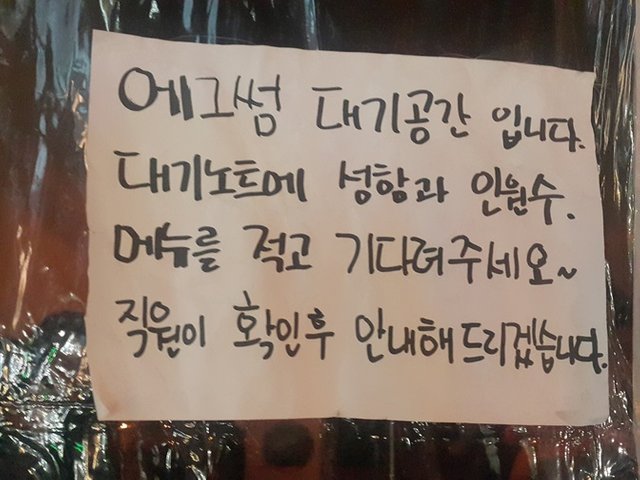 에그썸 대기공간 입니다.
대기노트에 성함과 인원수.
메뉴를 적고 기다려주세요~
직원이 확인후 안내해드리겠습니다.